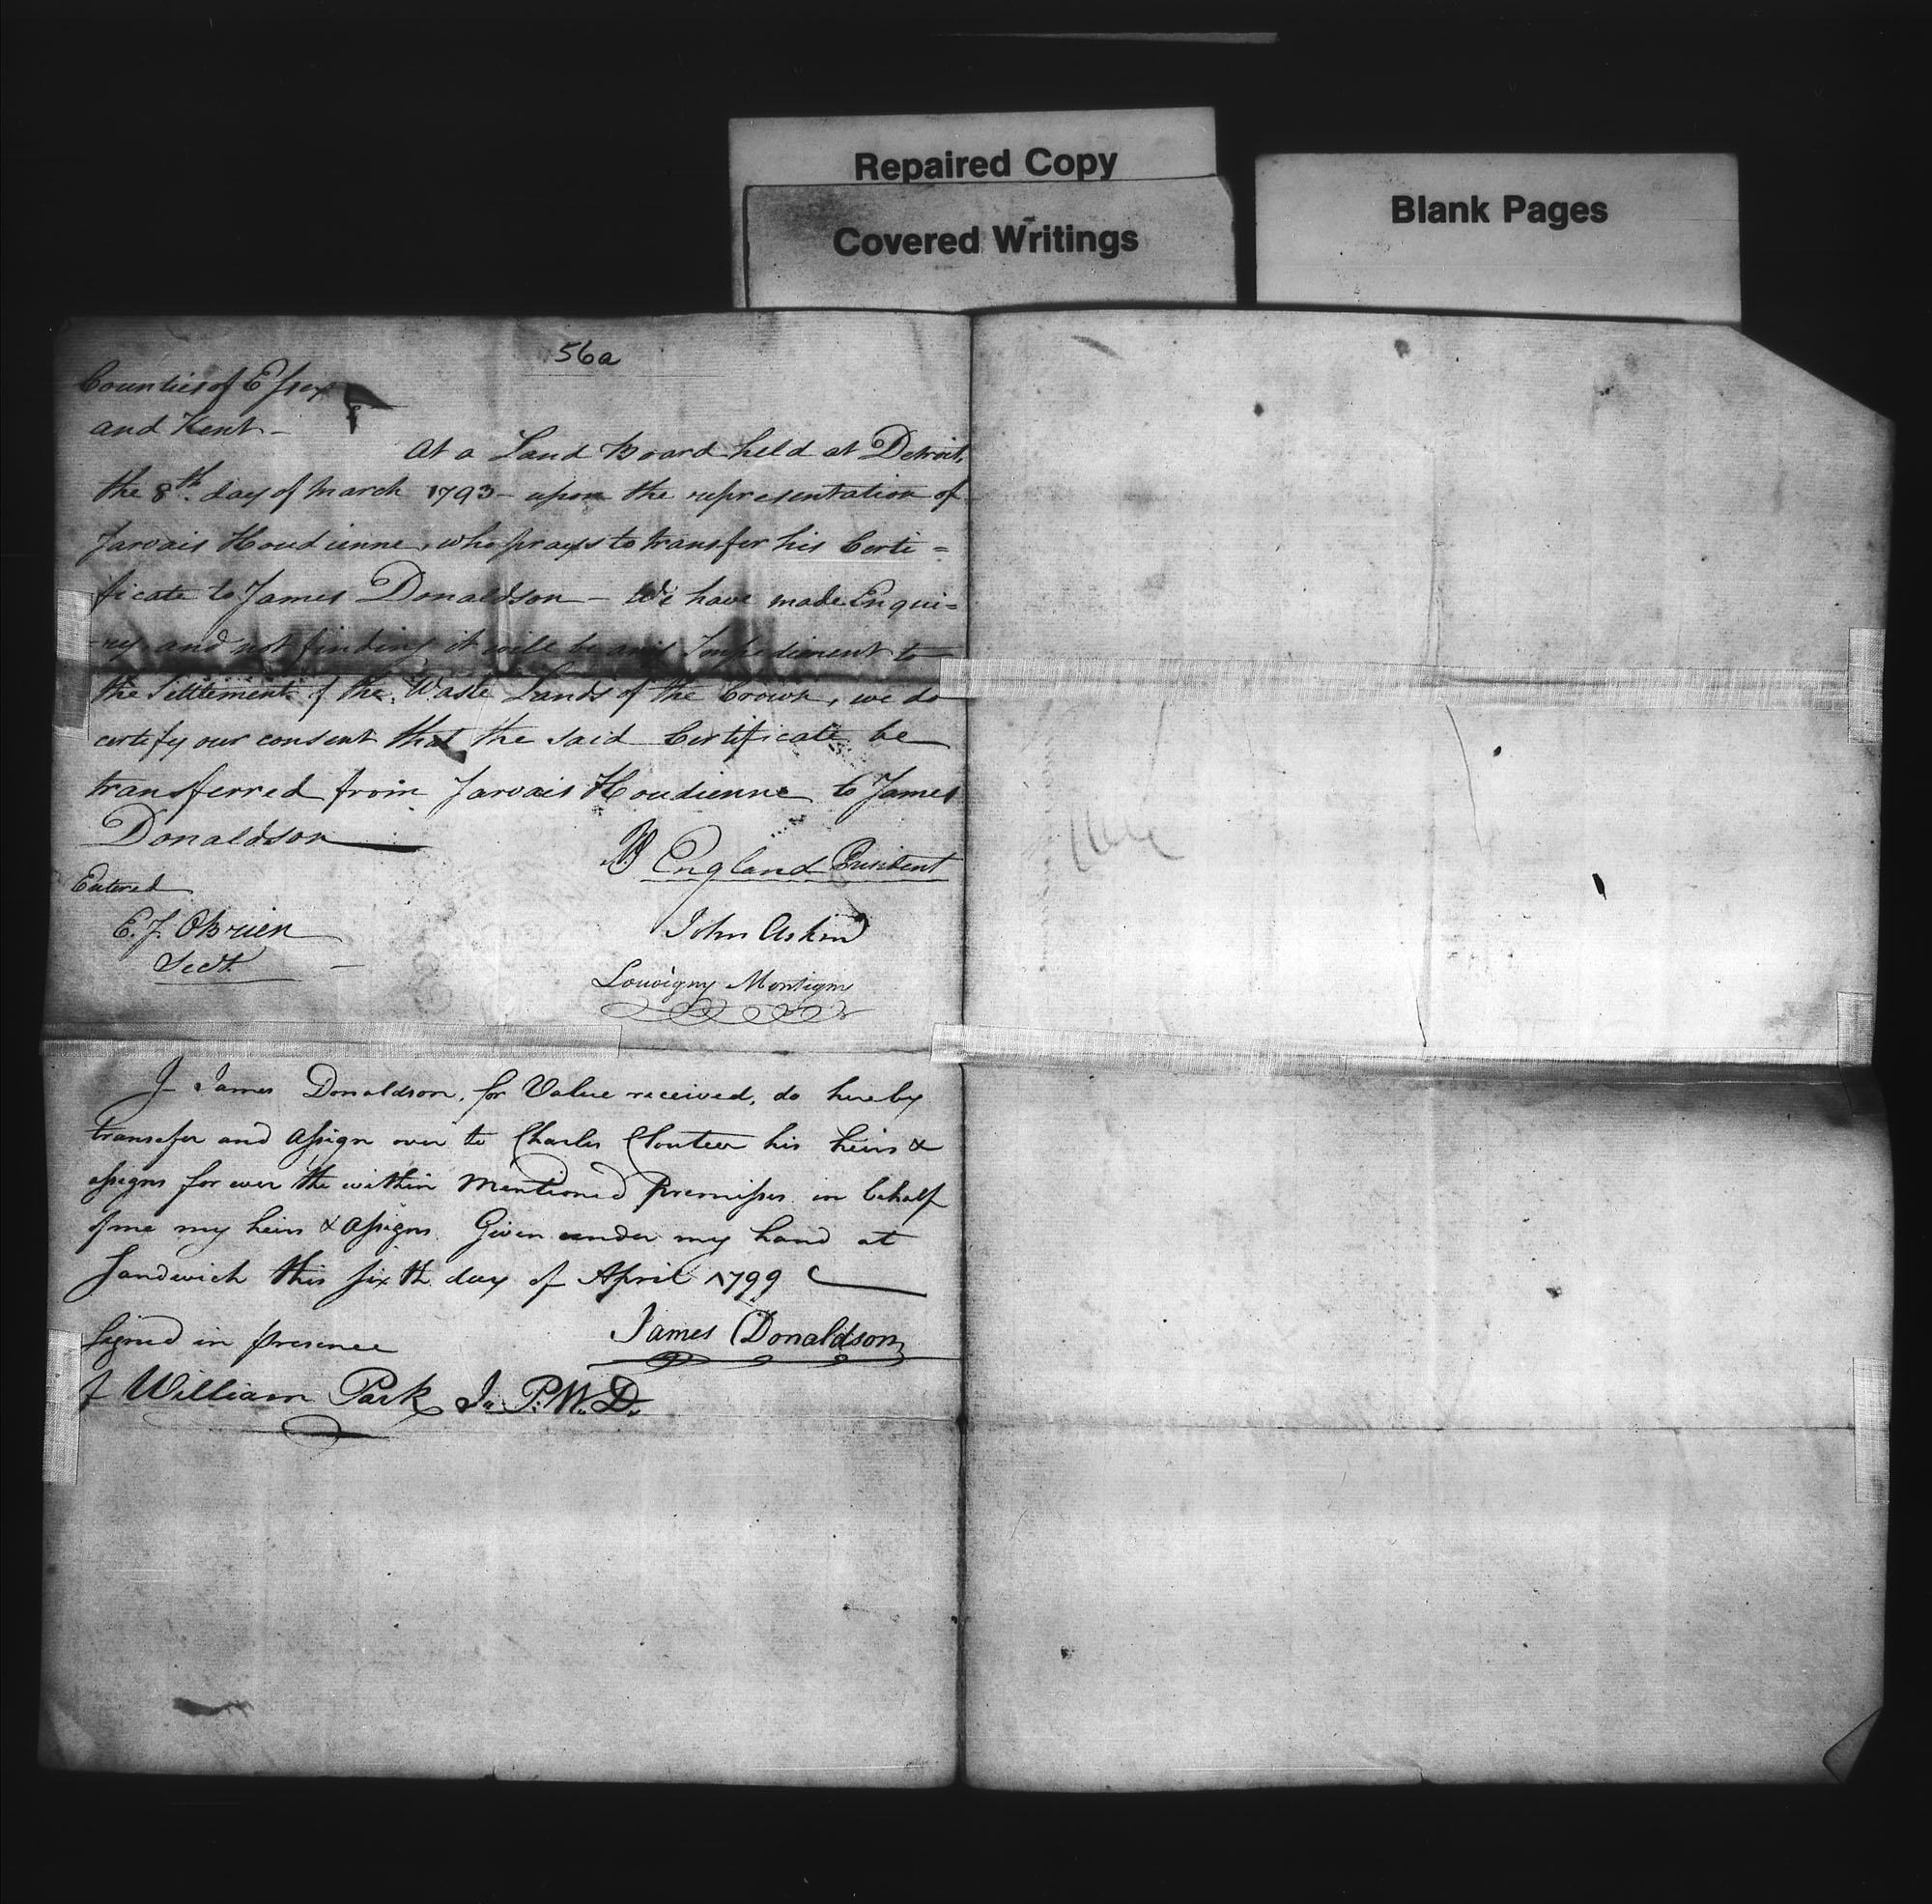 Repaired Copy
Covered Writings
Blank Pages
56a
Counties of Essex
and Kent -
At a Land Board held at Detroit,
the 8th. day of March 1793 - upon the representation of
Jarvais Houdienne, who prays to transfer his Certi =
ficate to James Donaldson - We have made Enqui =
-ry, and not finding it will be any Impediment to
the Settlement of the Waste Lands of the Crown, we do
certify our consent that the said Certificate be
transferred from Jarvais Houdienne to James
Donaldson
England President
Entered
John Askin
E. J. OBrien
Secy.
Louvigny Montigny
I James Donaldson, for Value received, do hereby
transfer and assign over to Charles Clouteer his heirs &
assigns for ever the within Mentioned Premisses in behalf
of me my heirs & assigns. Given under my hand at
Sandwich this sixth day of April 1799
Signed in presence
James Donaldson
of William Park J. P. W. D.